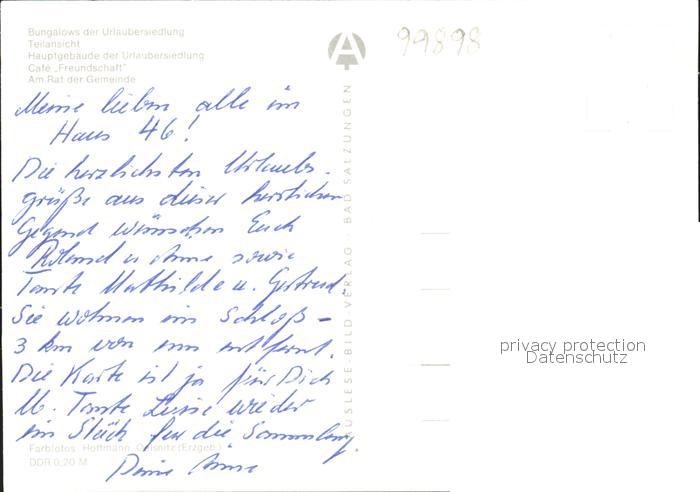 Bungalows der Urlaubersiedlung
Teilansicht
Hauptgebäude der Urlaubersiedlung
Café „Freundschaft"
Am Rat der Gemeinde
99898
Meine lieben alle im
Haus 46!
Die herzlichsten Urlaubs-
grüße aus dieser herrlichen
Gegend wünschen Euch
Roland u. sowie
Tante Mathilde u. Gertrud.
Sie wohnen im Schloß –
3 km von uns entfernt.
Die Karte ist ja für Dich
u. Tante Lusie wieder
ein Stück für die Sammlung.
Deine
AUSLESE-BILD-VERLAG · BAD SALZUNGEN
Farbfotos: Hoffmann, Oelsnitz (Erzgeb.)
DDR 0,20 M
privacy protection
Datenschutz